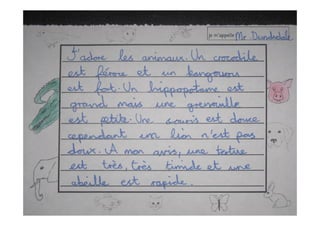 je m'appelle Mr Dundedale
J'adore les animaux. Un crocodile
est féroce et un kangourou
est fort. Un hippopotame est
grand mais une grenouille
est petite. Une souris est douce
cependant un lion n'est pas
doux. A mon avis, une tortue
est très, très timide et une
abeille est rapide.